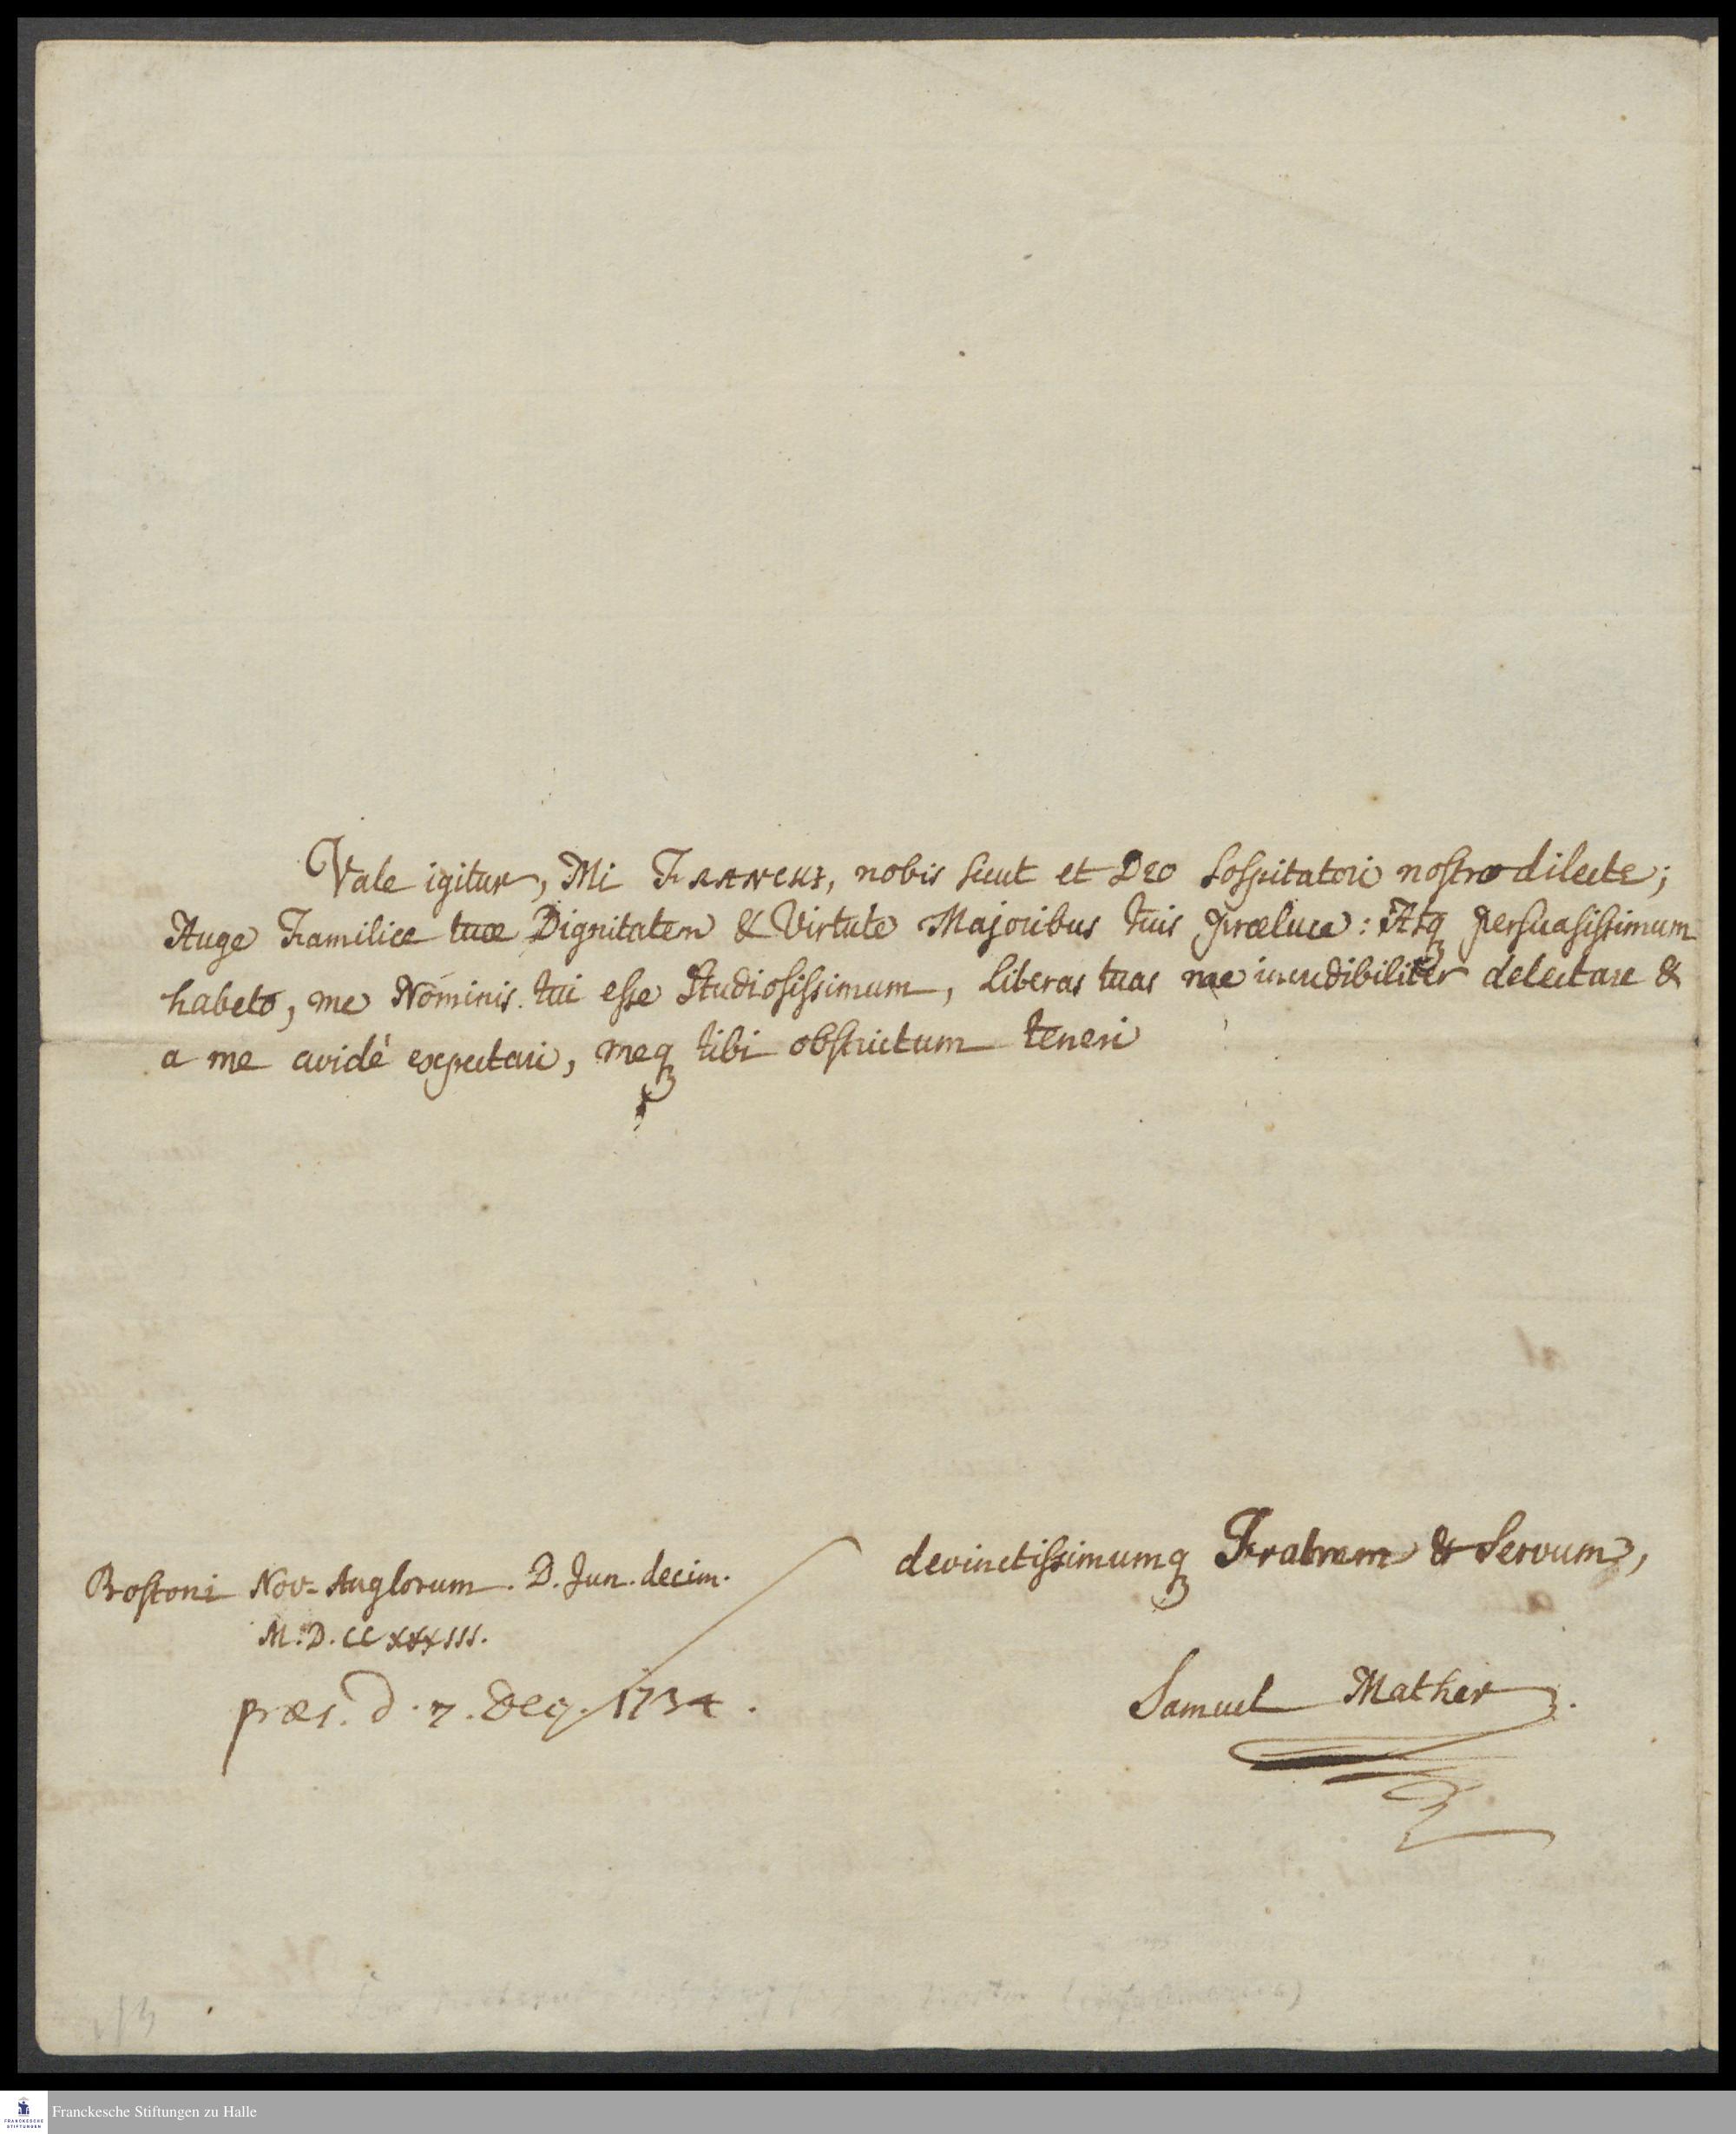 Vale igitur, Mi Francki, nobis sicut et Deo Sospitatori nostro dilecte;
Auge Familiæ tuæ Dignitatem & Virtute Majoribus tuis præluce: Atq persuasissimum
habeto, me Nominis tui esse Studiosissimum, Literas tuas me incredibiliter delectare &
a me avidé expectari, meq tibi obstrictum teneri
devinctissimumq Fratrem & Servum,
Bostoni Nov-Anglorum. D. Jun. decim.
M.D.CCXXXIII.
Samuel Mather.
præs. d. 7. Dec. 1734.
Franckesche Stiftungen zu Halle
FRANCKESCHE
STIFTUNGEN